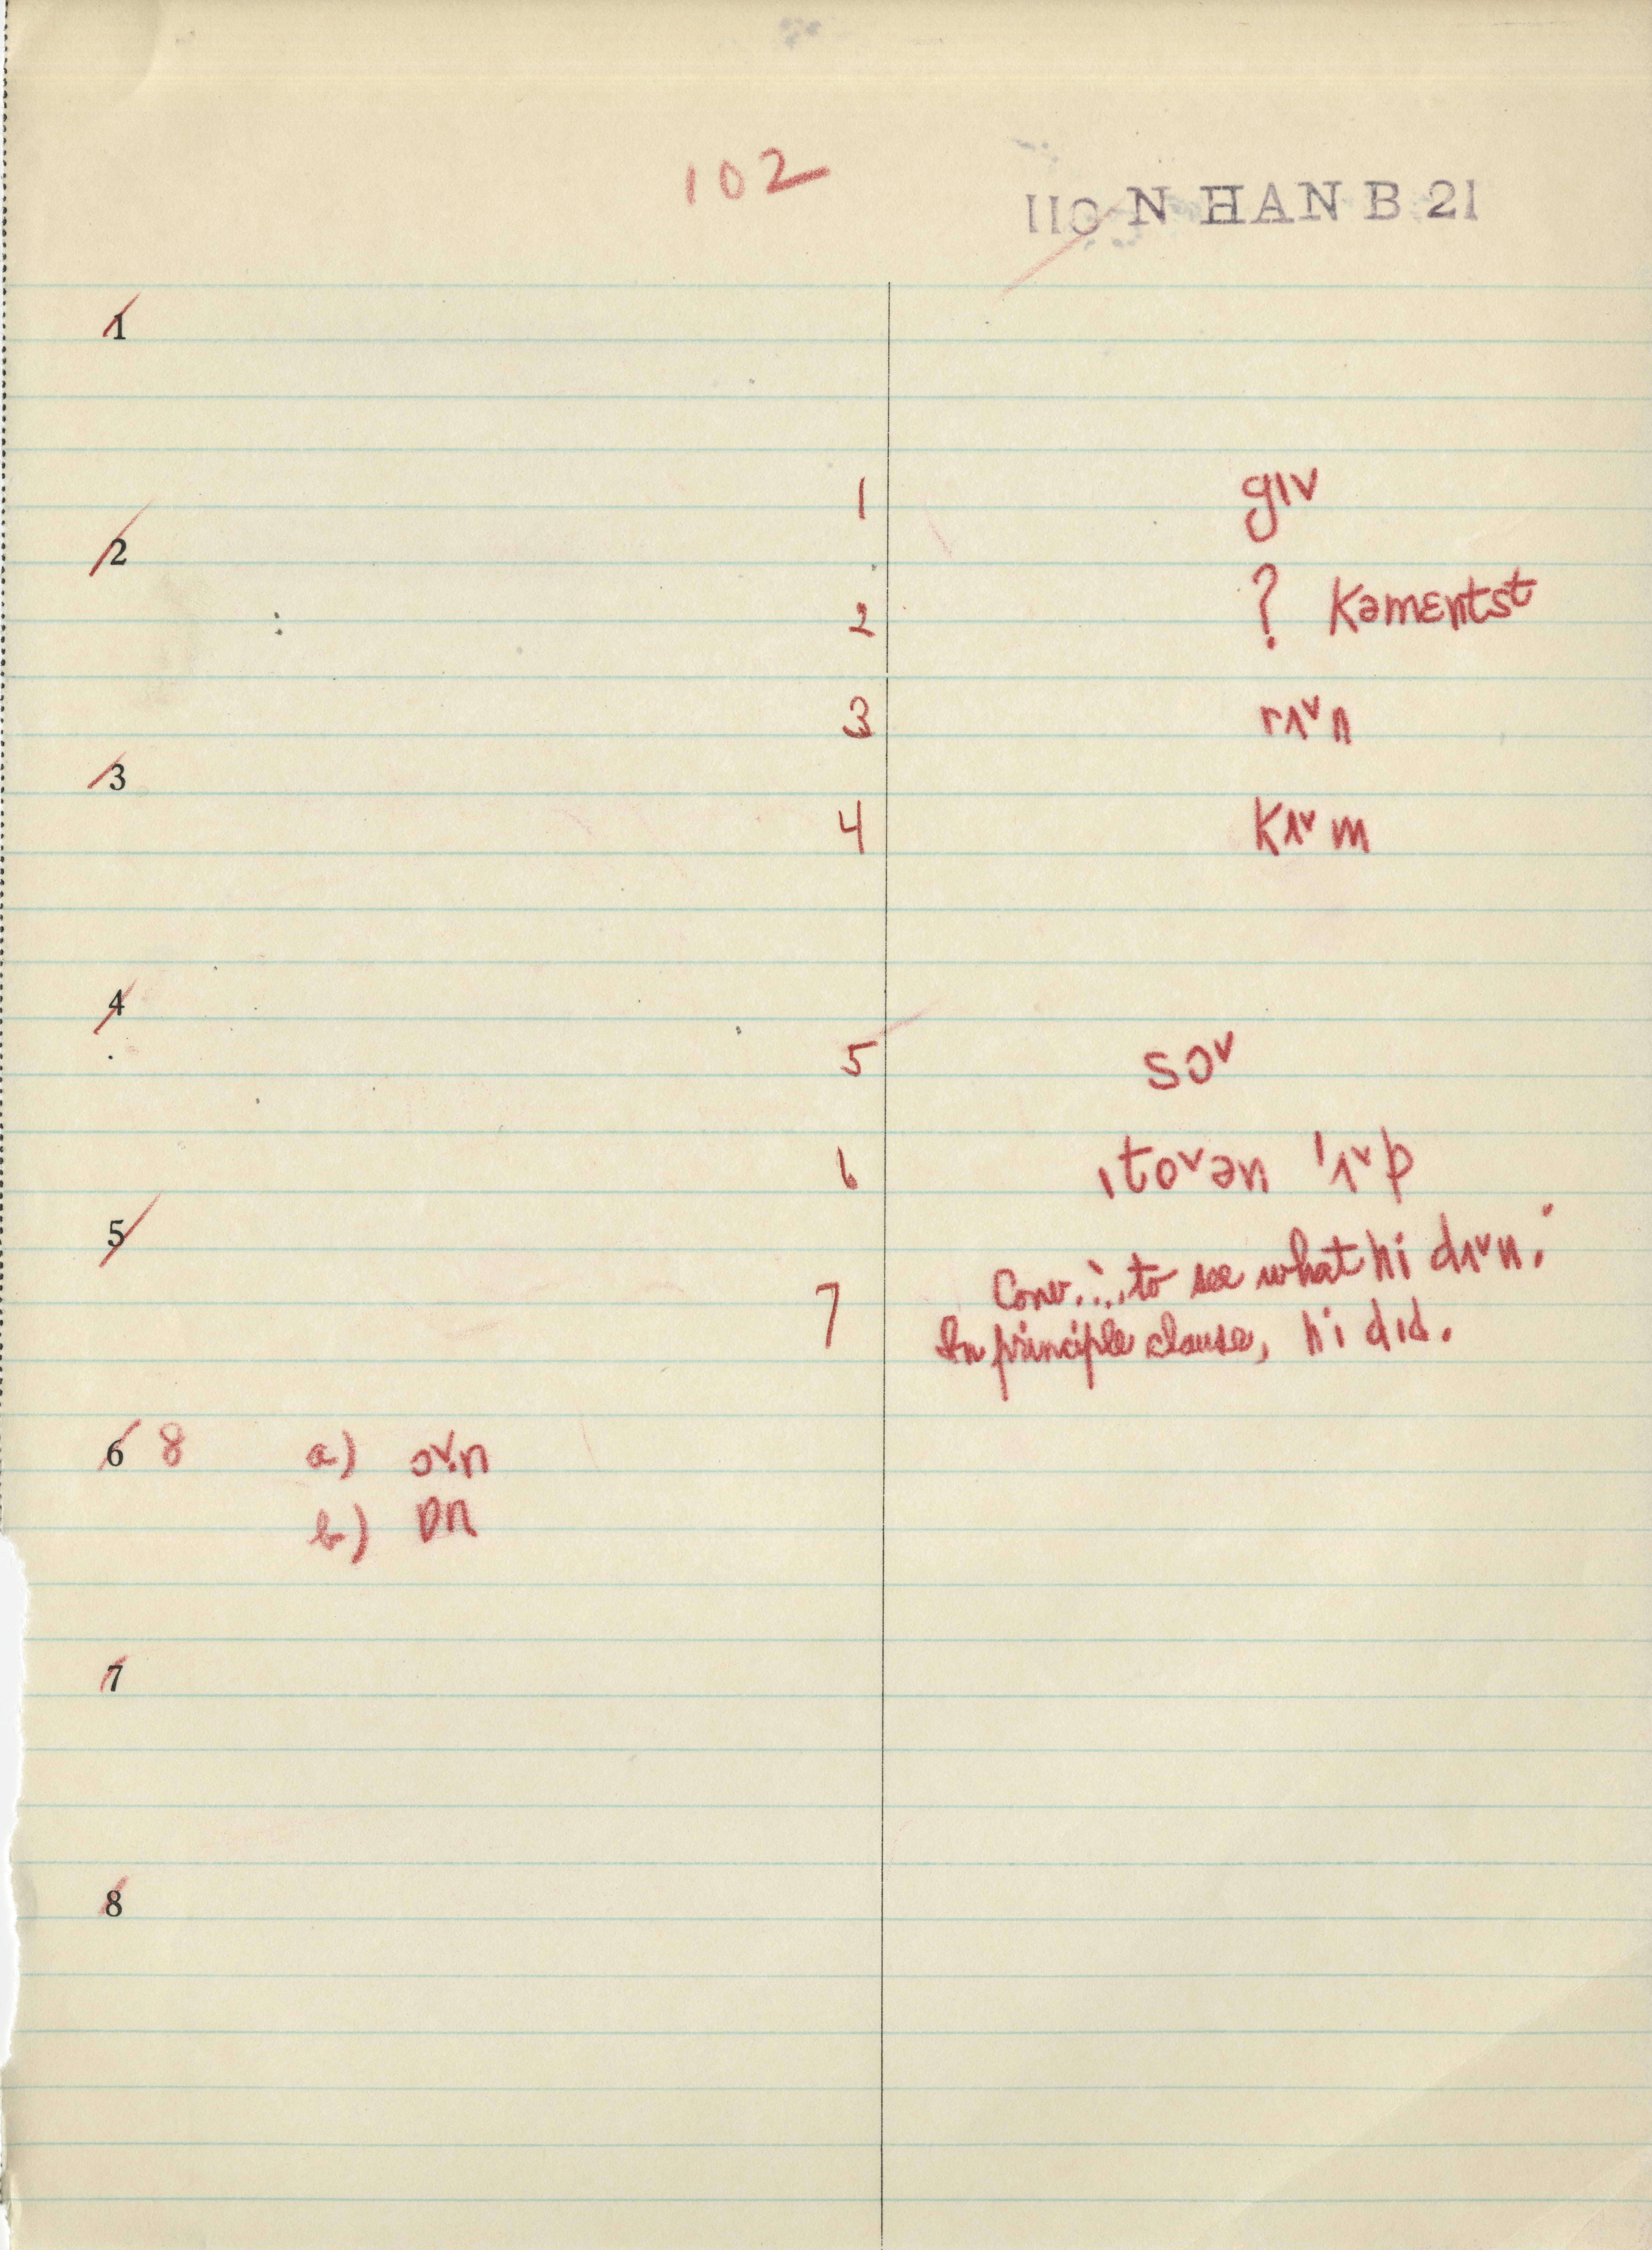 102
110 N HAN B 21
1
1 gɪv
2
2 ? Kəmɛntst
3 rʌˇn
3
4 Kʌˇm
4
5 sɔˇ
6 ˌtoˇən ˈʌˇp
5
7 Conv. ∴, to see what hi dʌˇn.
In principle clause, hi dɪd.
6 8 a) ɔˇ.n
b) ɒn
7
8